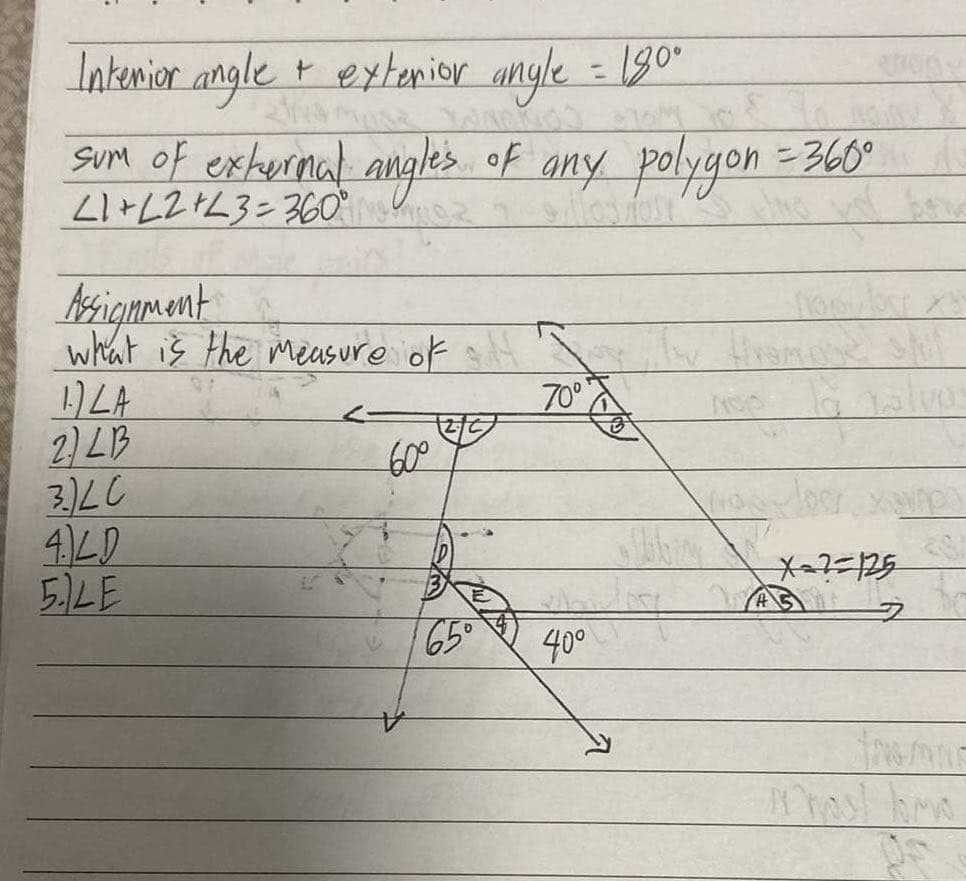 Interior angle + exterior angle = 180°
sum of external angles of any polygon = 360°
∠1+∠2+∠3=360°
Assignment
what is the measure of
1.)∠A
2.)∠B
3.)∠C
4.)∠D
5.)∠E
70° 1
2 C B
60°
D
X=?=125
3 E A 5
65° 4 40°